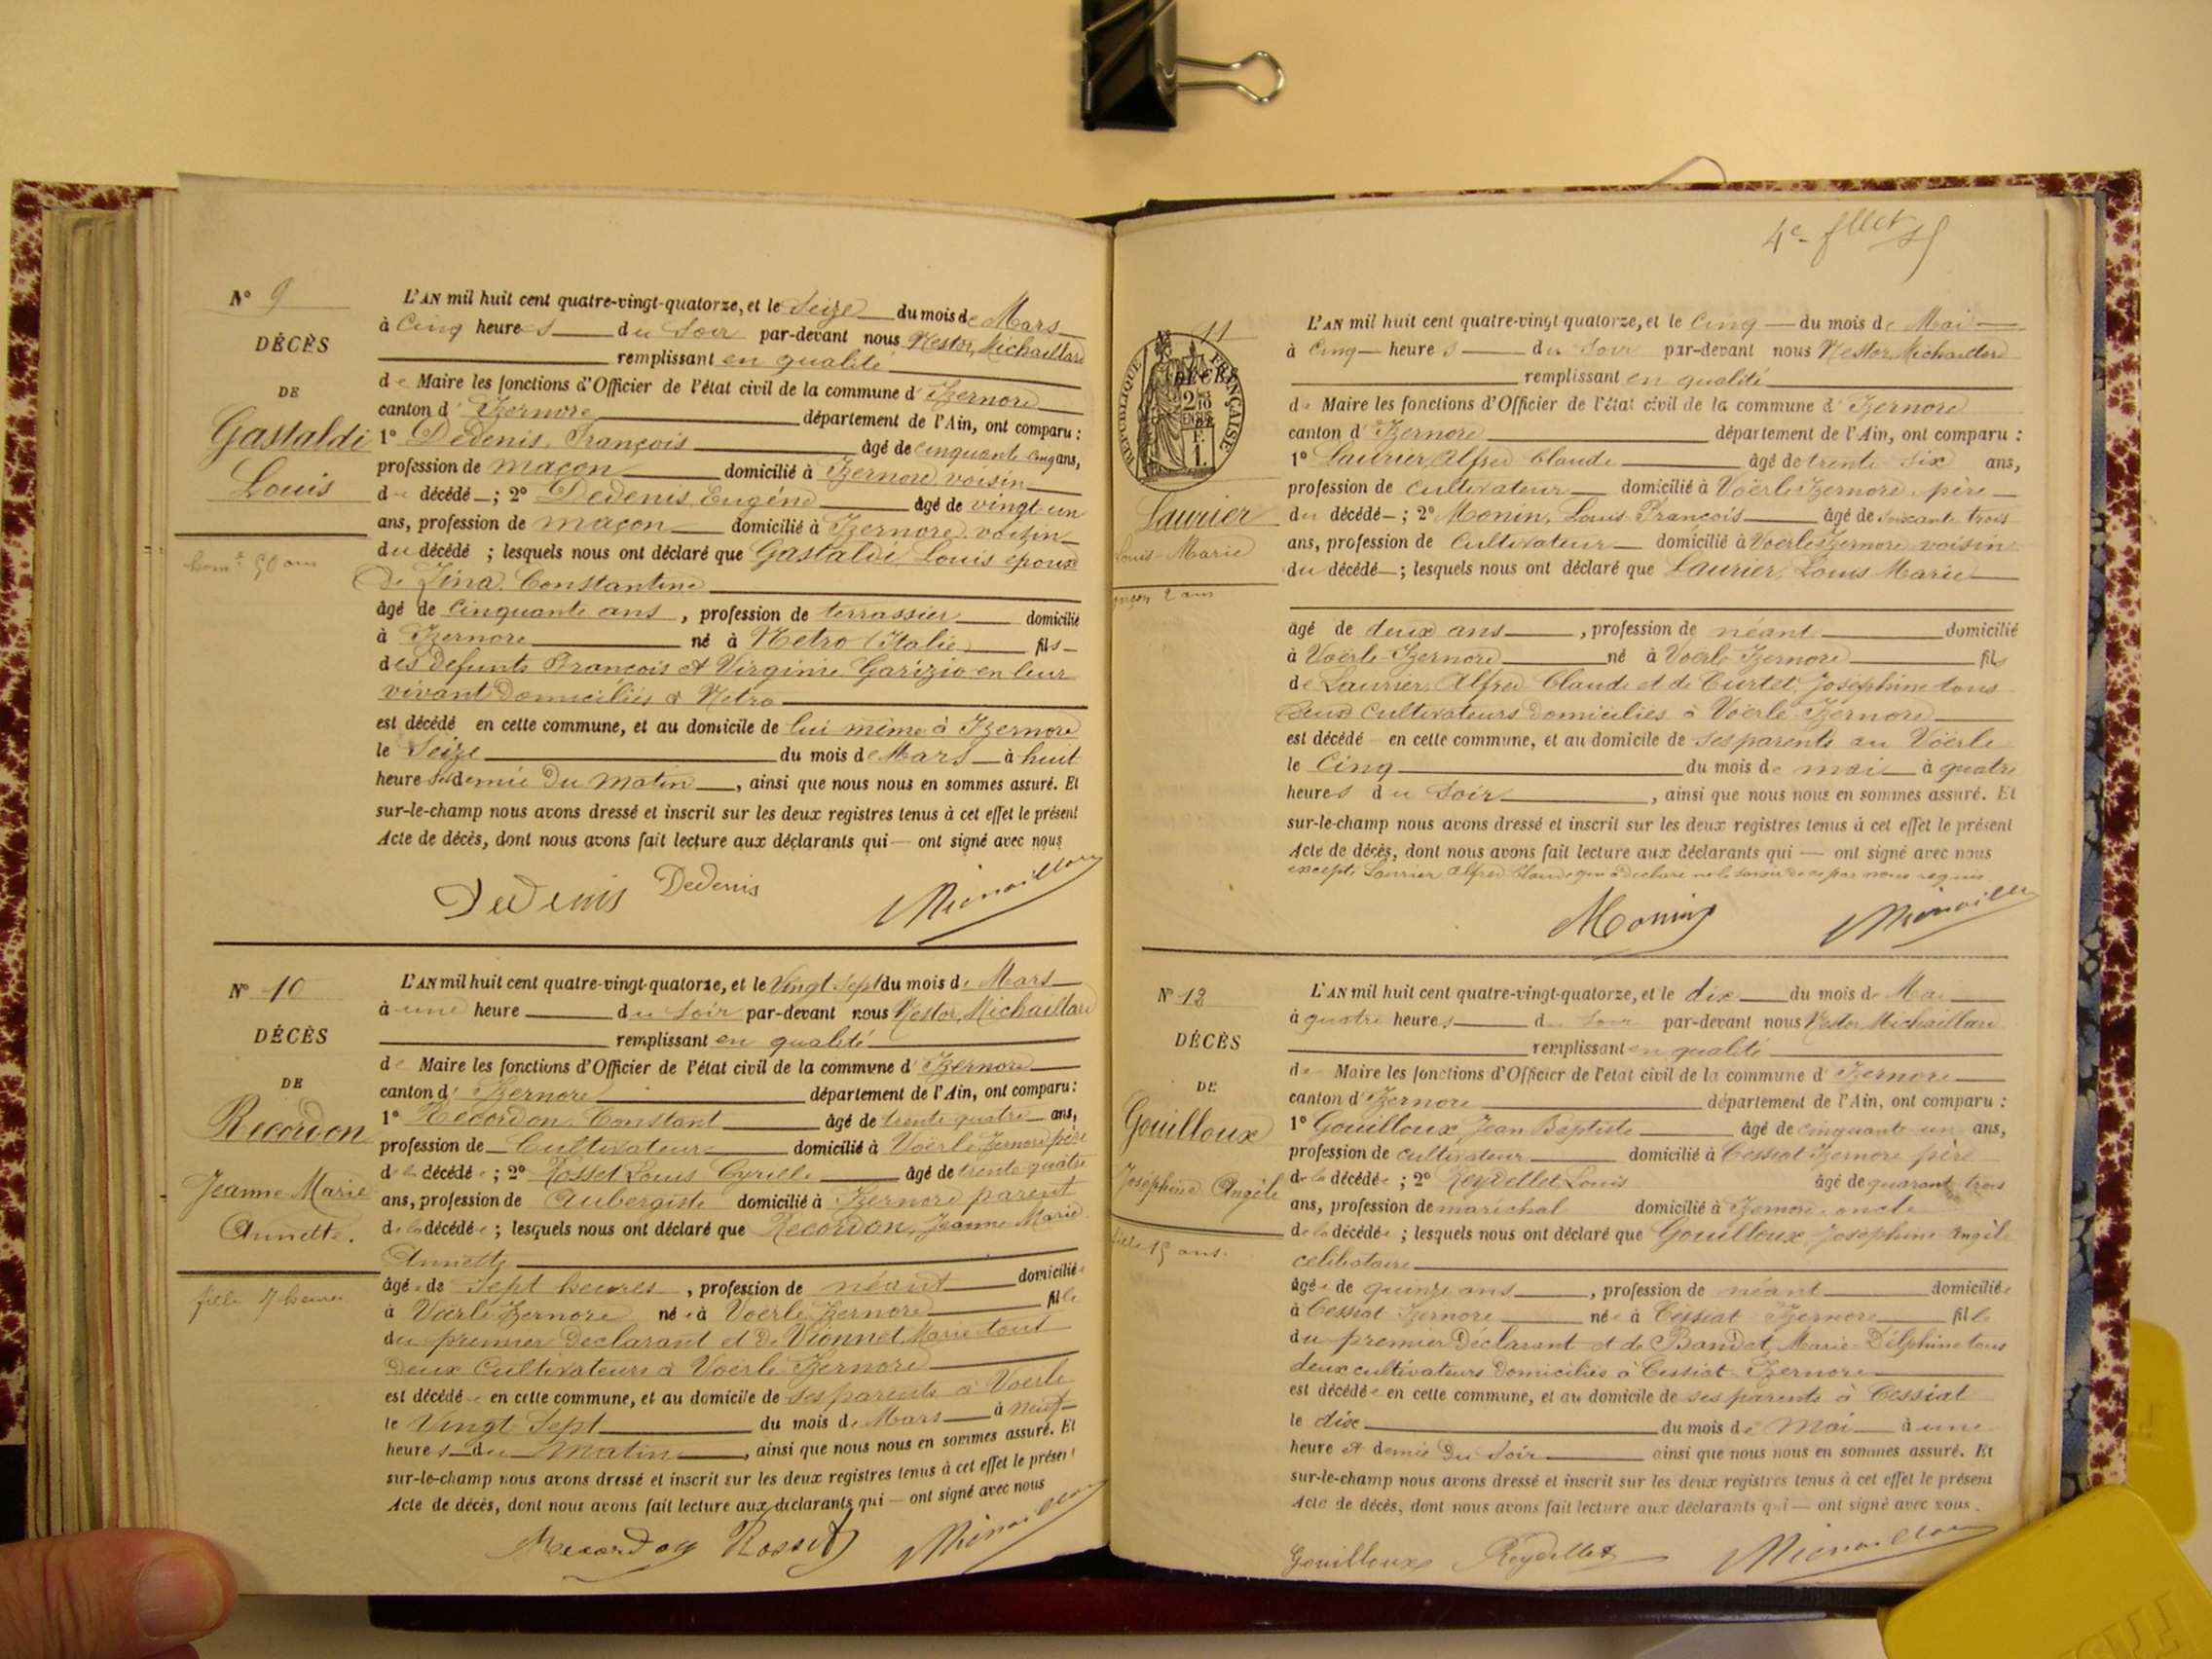 N° 9
DÉCÈS
DE
Gastaldi
Louis
50 ans
L'AN mil huit cent quatre-vingt-quatorze, et le Seize du mois de Mars
à Cinq heures du Soir par-devant nous Nestor Michaillard
remplissant en qualité
de Maire les fonctions d'Officier de l'état civil de la commune d'Izernore
canton d'Izernore département de l'Ain, ont comparu :
1° Dedenis, François âgé de cinquante cinq ans,
profession de maçon domicilié à Izernore voisin
du décédé ; 2° Dedenis Eugène âgé de vingt un
ans, profession de maçon domicilié à Izernore voisin
du décédé ; lesquels nous ont déclaré que Gastaldi, Louis époux
De Zina Constantine
âgé de cinquante ans, profession de terrassier domicilié
à Izernore né à Netro (Italie) fils
des défunts François et Virginie Garizio en leur
vivant Domiciliés à Netro
est décédé en cette commune, et au domicile de lui même à Izernore
le Seize du mois de Mars à huit
heures et demie Du matin, ainsi que nous nous en sommes assuré. Et
sur-le-champ nous avons dressé et inscrit sur les deux registres tenus à cet effet le présent
Acte de décès, dont nous avons fait lecture aux déclarants qui — ont signé avec nous
Dedenis Dedenis Michaillard
N° 10
DÉCÈS
DE
Recordon
Jeanne Marie
Annette.
fille 7 heures
L'AN mil huit cent quatre-vingt-quatorze, et le Vingt Sept du mois de Mars
à une heure du Soir par-devant nous Nestor Michaillard
remplissant en qualité
de Maire les fonctions d'Officier de l'état civil de la commune d'Izernore
canton d'Izernore département de l'Ain, ont comparu :
1° Recordon Constant âgé de trente quatre ans,
profession de Cultivateur domicilié à Voërle Izernore père
de la décédée ; 2° Rosset Louis Cyrille âgé de trente quatre
ans, profession de Aubergiste domicilié à Izernore parent
de la décédée ; lesquels nous ont déclaré que Recordon, Jeanne Marie
Annette
âgée de Sept heures, profession de néant domiciliée
à Voërle Izernore née à Voërle Izernore fille
du premier Déclarant et De Vionnet Marie tout
Deux Cultivateurs à Voërle Izernore
est décédée en cette commune, et au domicile de ses parents à Voerle
le Vingt Sept du mois de Mars à neuf
heures du Matin, ainsi que nous nous en sommes assuré. Et
sur-le-champ nous avons dressé et inscrit sur les deux registres tenus à cet effet le présent
Acte de décès, dont nous avons fait lecture aux déclarants qui — ont signé avec nous
Recordon Rosset Michaillard
4e fllet
11
RÉPUBLIQUE FRANÇAISE
Laurier
Louis Marie
garçon 2 ans
L'AN mil huit cent quatre-vingt quatorze, et le Cinq du mois de Mai
à Cinq heures du Soir par-devant nous Nestor Michaillard
remplissant en qualité
de Maire les fonctions d'Officier de l'état civil de la commune d'Izernore
canton d'Izernore département de l'Ain, ont comparu :
1° Laurier, Alfred Claude âgé de trente six ans,
profession de Cultivateur domicilié à Voërle Izernore, père
du décédé ; 2° Monin, Louis François âgé de soixante trois
ans, profession de Cultivateur domicilié à Voerle Izernore voisin
du décédé ; lesquels nous ont déclaré que Laurier, Louis Marie
âgé de deux ans, profession de néant domicilié
à Voërle Izernore né à Voërle Izernore fils
de Laurier, Alfred Claude et de Curtet, Joséphine tous
Deux Cultivateurs Domiciliés à Voërle Izernore
est décédé en cette commune, et au domicile de ses parents au Voërle
le Cinq du mois de mai à quatre
heures du Soir, ainsi que nous nous en sommes assuré. Et
sur-le-champ nous avons dressé et inscrit sur les deux registres tenus à cet effet le présent
Acte de décès, dont nous avons fait lecture aux déclarants qui — ont signé avec nous
excepté Laurier Alfred Claude qui a déclaré ne le savoir de ce par nous requis
Monin Michaillard
N° 12
DÉCÈS
DE
Gouilloux
Joséphine Angèle
fille 15 ans.
L'AN mil huit cent quatre-vingt-quatorze, et le dix du mois de Mai
à quatre heures du Soir par-devant nous Nestor Michaillard
remplissant en qualité
de Maire les fonctions d'Officier de l'état civil de la commune d'Izernore
canton d'Izernore département de l'Ain, ont comparu :
1° Gouilloux Jean Baptiste âgé de cinquante un ans,
profession de cultivateur domicilié à Cessiat Izernore père
de la décédée ; 2° Reydellet Louis âgé de quarante trois
ans, profession de maréchal domicilié à Izernore oncle
de la décédée ; lesquels nous ont déclaré que Gouilloux Joséphine Angèle
célibataire
âgée de quinze ans, profession de néant domiciliée
à Cessiat Izernore née à Cessiat Izernore fille
du premier Déclarant et de Bandet Marie Delphine tous
deux cultivateurs Domiciliés à Cessiat Izernore
est décédée en cette commune, et au domicile de ses parents à Cessiat
le dix du mois de Mai à une
heure et demie Du Soir ainsi que nous nous en sommes assuré. Et
sur-le-champ nous avons dressé et inscrit sur les deux registres tenus à cet effet le présent
Acte de décès, dont nous avons fait lecture aux déclarants qui — ont signé avec nous.
Gouilloux Reydellet Michaillard